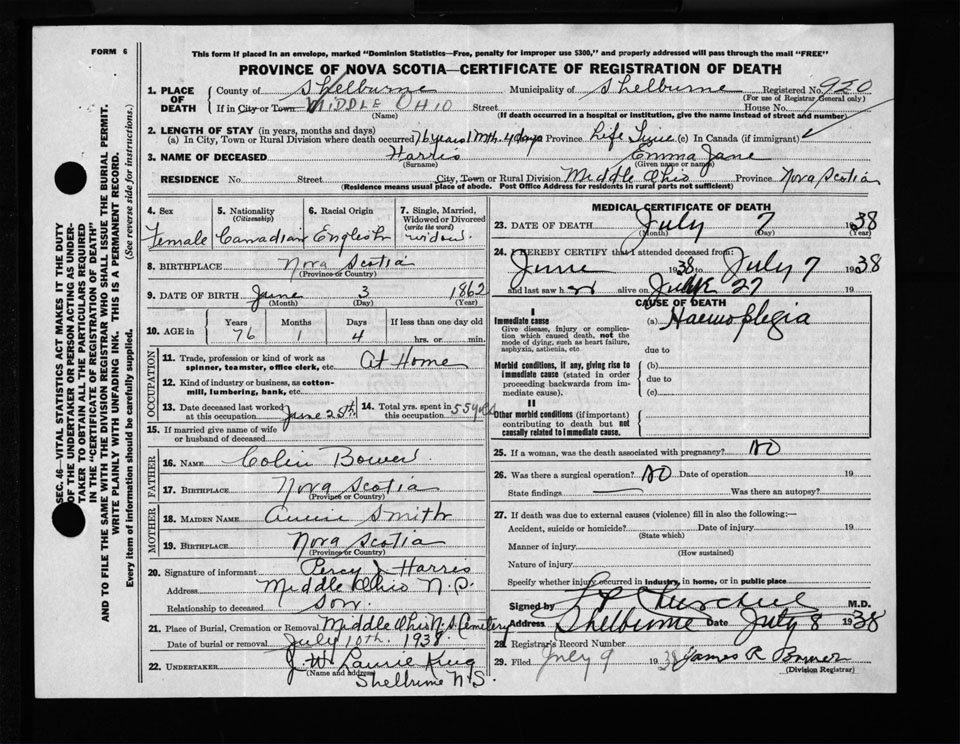 FORM 6
This form if placed in an envelope, marked "Dominion Statistics—Free, penalty for improper use $300," and properly addressed will pass through the mail "FREE"
PROVINCE OF NOVA SCOTIA—CERTIFICATE OF REGISTRATION OF DEATH
SEC. 46—VITAL STATISTICS ACT MAKES IT THE DUTY
OF THE UNDERTAKER OR PERSON ACTING AS UNDER-
TAKER TO OBTAIN ALL THE PARTICULARS REQUIRED
IN THE "CERTIFICATE OF REGISTRATION OF DEATH"
AND TO FILE THE SAME WITH THE DIVISION REGISTRAR WHO SHALL ISSUE THE BURIAL PERMIT.
WRITE PLAINLY WITH UNFADING INK. THIS IS A PERMANENT RECORD.
Every item of information should be carefully supplied. (See reverse side for instructions.)
1. PLACE OF DEATH
County of Shelburne Municipality of Shelburne Registered No. 920
(For use of Registrar General only)
If in City or Town MIDDLE OHIO Street House No.
(Name) (If death occurred in a hospital or institution, give the name instead of street and number)
2. LENGTH OF STAY (in years, months and days)
(a) In City, Town or Rural Division where death occurred 76 years 1 Mth. 4 days Province Life Time (c) In Canada (if immigrant)
3. NAME OF DECEASED Harris Emma Jane
(Surname) (Given name or names)
RESIDENCE No. Street City, Town or Rural Division Middle Ohio Province Nova Scotia
(Residence means usual place of abode. Post Office Address for residents in rural parts not sufficient)
4. Sex Female
5. Nationality (Citizenship) Canadian
6. Racial Origin English
7. Single, Married, Widowed or Divorced (write the word) widow
8. BIRTHPLACE Nova Scotia
(Province or Country)
9. DATE OF BIRTH June 3 1862
(Month) (Day) (Year)
10. AGE in Years Months Days If less than one day old
76 1 4 hrs. or min.
OCCUPATION
11. Trade, profession or kind of work as spinner, teamster, office clerk, etc. At Home
12. Kind of industry or business, as cotton-mill, lumbering, bank, etc.
13. Date deceased last worked at this occupation June 25th
14. Total yrs. spent in this occupation 55 yrs
15. If married give name of wife or husband of deceased
FATHER
16. NAME Colin Bower
17. BIRTHPLACE Nova Scotia
(Province or Country)
MOTHER
18. MAIDEN NAME Annie Smith
19. BIRTHPLACE Nova Scotia
(Province or Country)
20. Signature of informant Percy J Harris
Address Middle Ohio N.S.
Relationship to deceased Son
21. Place of Burial, Cremation or Removal Middle Ohio N.S. Cemetery
Date of burial or removal July 10th. 1938
22. UNDERTAKER J. W. Laurie King
(Name and address) Shelburne N.S.
MEDICAL CERTIFICATE OF DEATH
23. DATE OF DEATH July 7 1938
(Month) (Day) (Year)
24. I HEREBY CERTIFY that I attended deceased from:
June 1938 to July 7 1938
and last saw her alive on 27 19
CAUSE OF DEATH
I
Immediate cause (a) Haemoplegia
Give disease, injury or complication which caused death, not the mode of dying, such as heart failure, asphyxia, asthenia, etc.
due to
Morbid conditions, if any, giving rise to immediate cause (stated in order proceeding backwards from immediate cause).
(b)
due to
(c)
II
Other morbid conditions (if important) contributing to death but not causally related to immediate cause.
25. If a woman, was the death associated with pregnancy? NO
26. Was there a surgical operation? NO Date of operation 19
State findings — Was there an autopsy?
27. If death was due to external causes (violence) fill in also the following:—
Accident, suicide or homicide? Date of injury 19
(State which)
Manner of injury
(How sustained)
Nature of injury
Specify whether injury occurred in industry, in home, or in public place
Signed by Churchill M.D.
Address Shelburne Date July 8 1938
28. Registrar's Record Number
29. Filed July 9 1938 James R Bower
(Division Registrar)